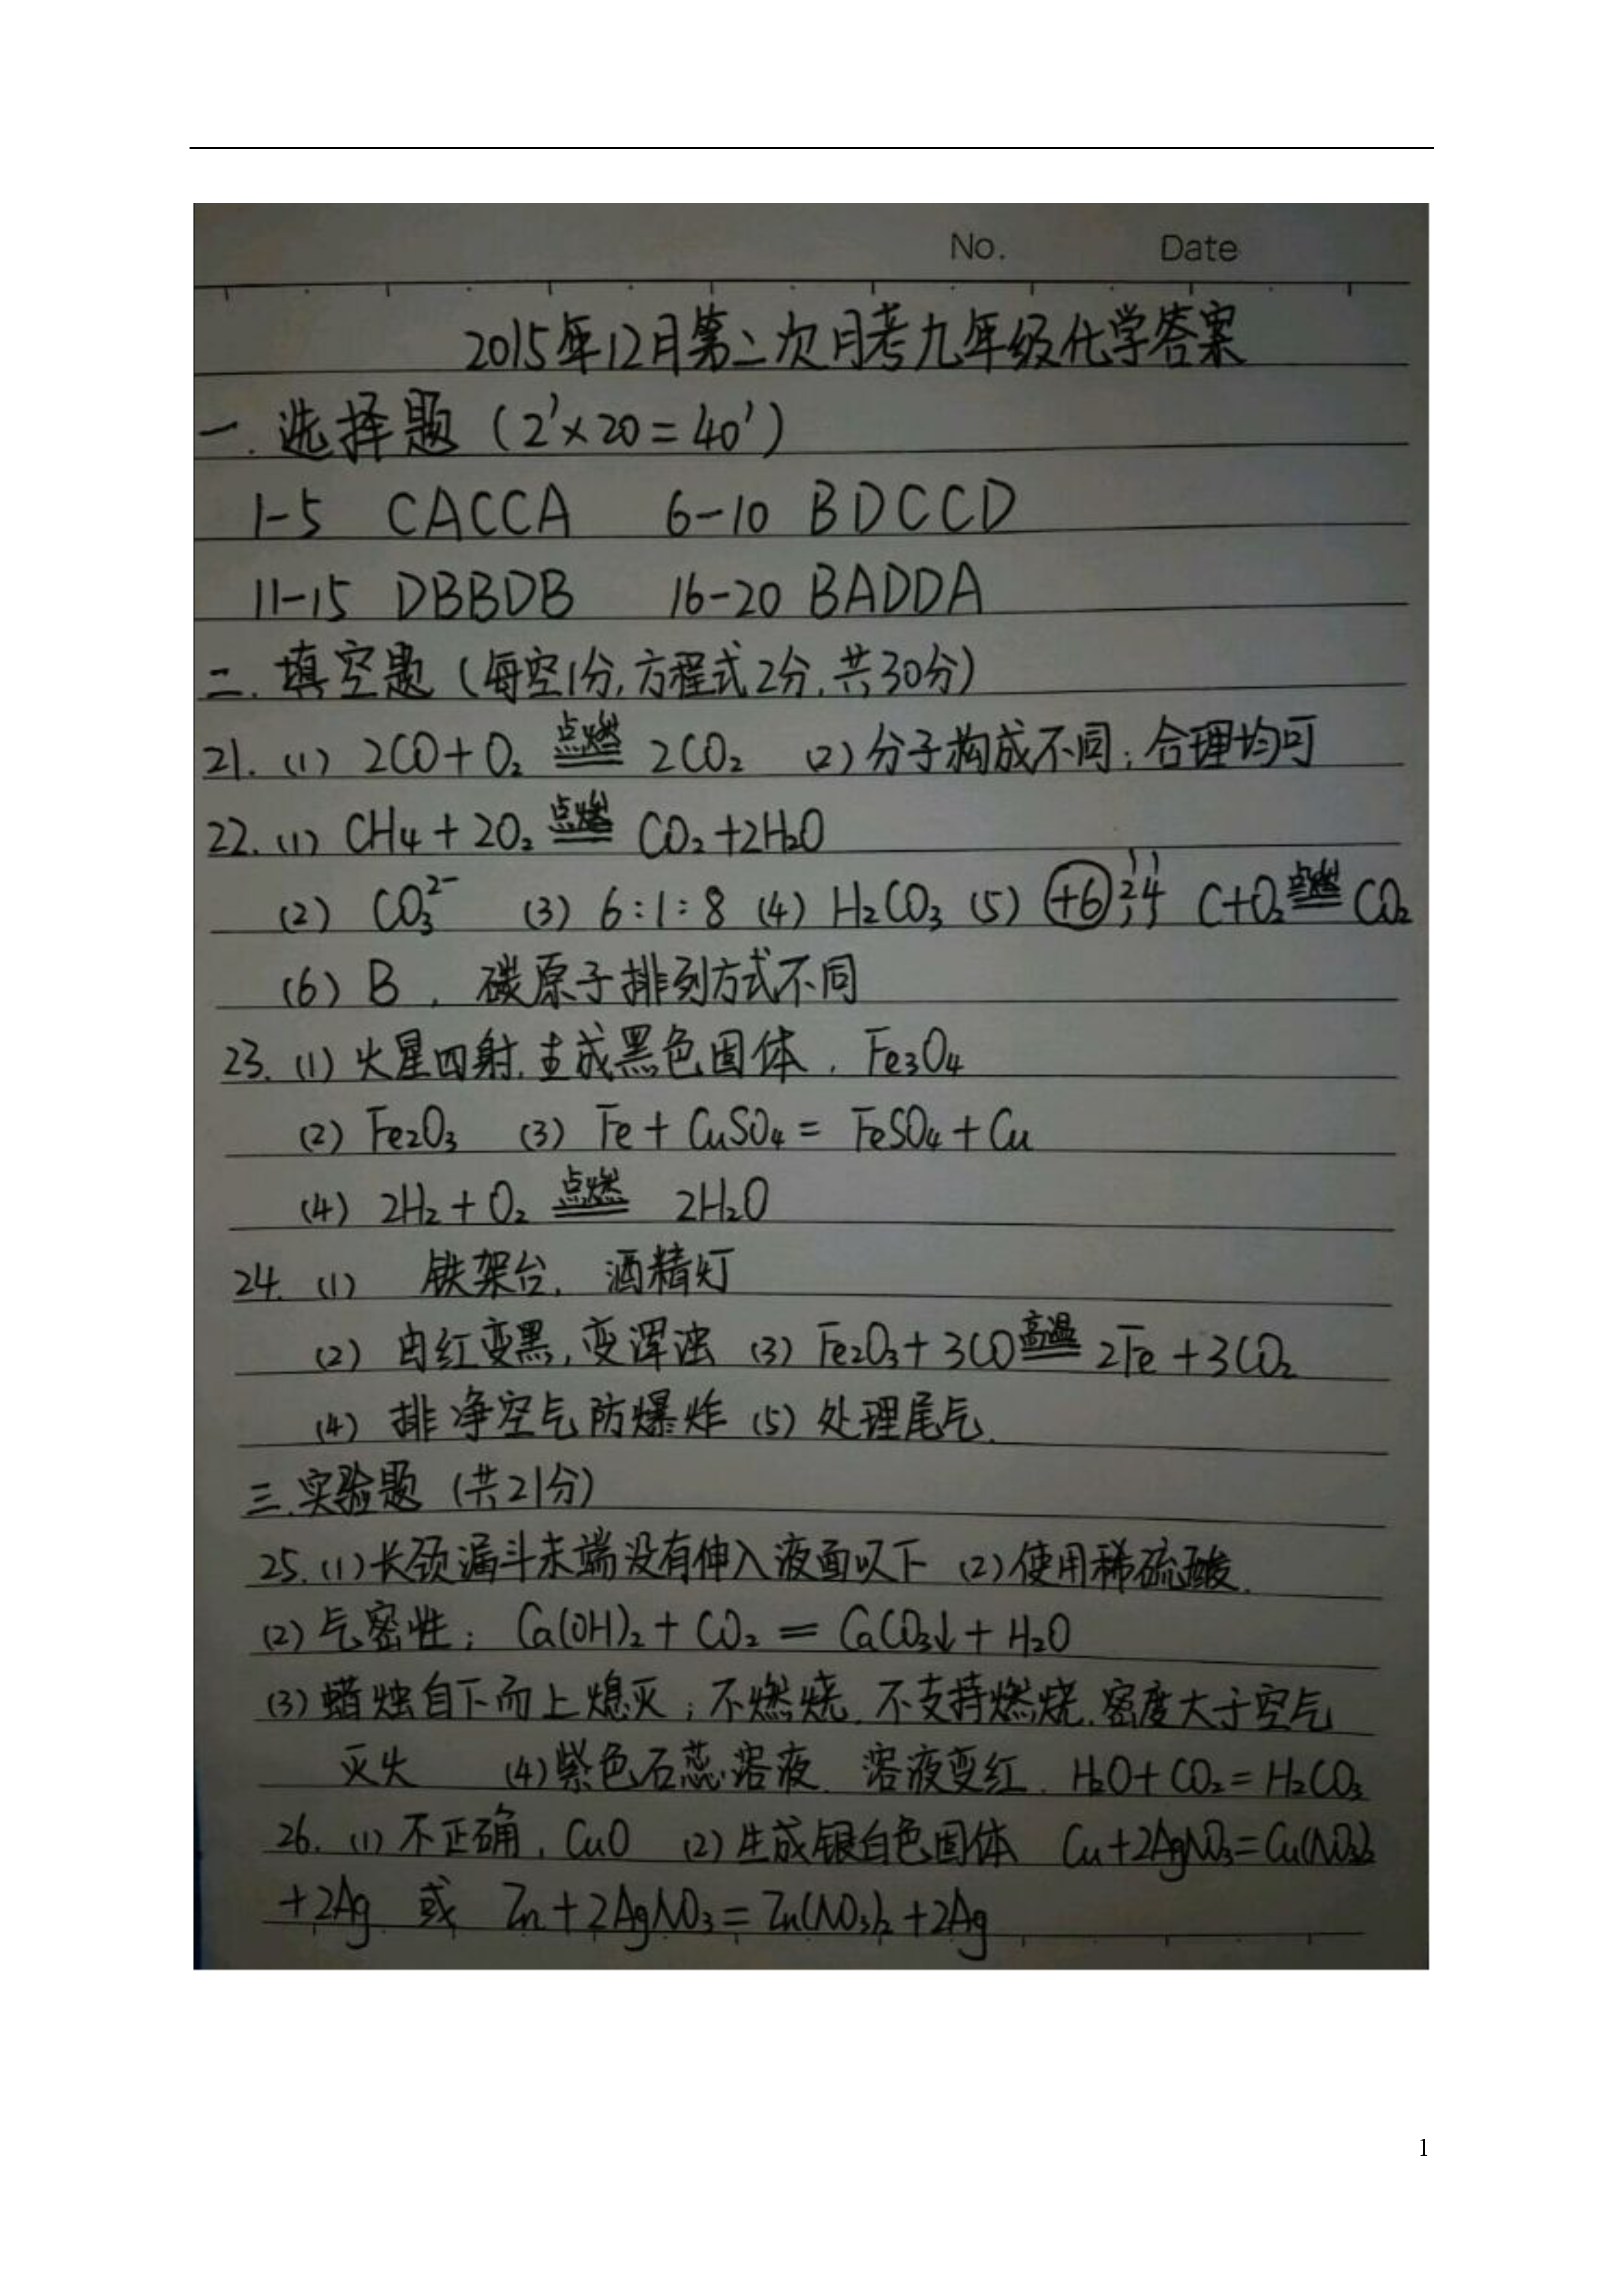 No. Date
2015年12月第二次月考九年级化学答案
一.选择题（2'×20=40'）
1-5 CACCA 6-10 BDCCD
11-15 DBBDB 16-20 BADDA
二.填空题（每空1分,方程式2分,共30分）
21.(1) 2CO+O₂ 点燃 2CO₂ (2)分子构成不同;合理均可
22.(1) CH₄+2O₂ 点燃 CO₂+2H₂O
(2) CO₃²⁻ (3) 6:1:8 (4) H₂CO₃ (5) +6 2 4 C+O₂ 点燃 CO₂
(6) B，碳原子排列方式不同
23.(1)火星四射,生成黑色固体，Fe₃O₄
(2) Fe₂O₃ (3) Fe+CuSO₄=FeSO₄+Cu
(4) 2H₂+O₂ 点燃 2H₂O
24.(1) 铁架台，酒精灯
(2) 由红变黑,变浑浊 (3) Fe₂O₃+3CO 高温 2Fe+3CO₂
(4) 排净空气防爆炸 (5) 处理尾气.
三.实验题（共21分）
25.(1)长颈漏斗末端没有伸入液面以下 (2)使用稀硫酸.
(2)气密性; Ca(OH)₂+CO₂=CaCO₃↓+H₂O
(3)蜡烛自下而上熄灭;不燃烧.不支持燃烧.密度大于空气
灭火 (4)紫色石蕊溶液. 溶液变红. H₂O+CO₂=H₂CO₃
26.(1)不正确，CuO (2)生成银白色固体 Cu+2AgNO₃=Cu(NO₃)₂
+2Ag 或 Zn+2AgNO₃=Zn(NO₃)₂+2Ag
1